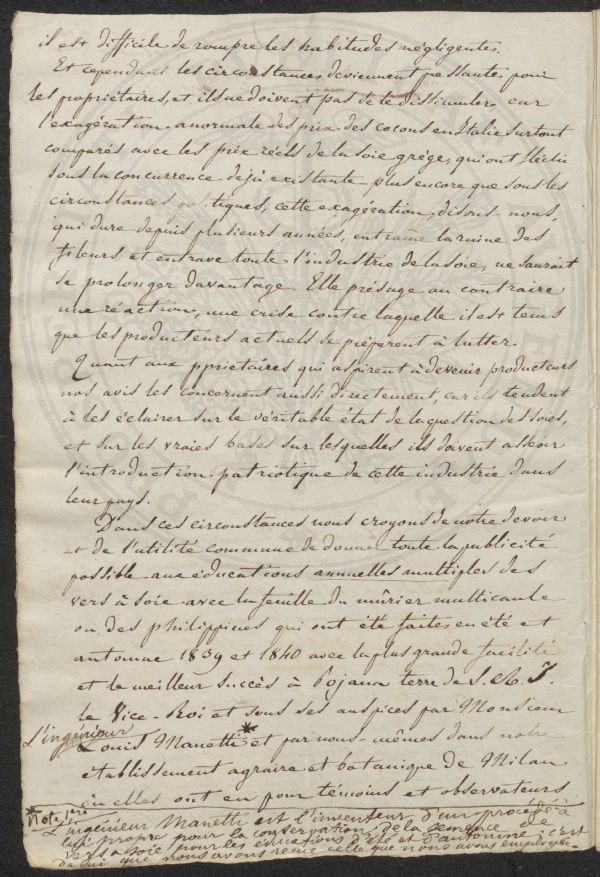 il est difficile de rompre les habitudes négligentes.
Et cependant les circonstances deviennent pessantes pour
les propriétaires, et ils ne doivent pas se le dissimuler, car
l'exagération anormale des prix des cocons en Italie surtout
comparés avec les prix réels de la soie grège, qui ont fléchi
sous la concurrence déjà existante plus encore que sous les
circonstances politiques, cette exagération, disons-nous,
qui dure depuis plusieurs années, entraîne la ruine des
fileurs et entrave toute l'industrie de la soie, ne saurait
se prolonger davantage. Elle présage au contraire
une réaction, une crise contre laquelle il est tems
que les producteurs actuels se préparent à lutter.
Quant aux ppriétaires qui aspirent à devenir producteurs
nos avis les concernent aussi directement, car ils tendent
à les éclairer sur le véritable état de la question des soies,
et sur les vraies bases sur lesquelles ils doivent asseoir
l'introduction patriotique de cette industrie dans
leur pays.
Dans ces circonstances nous croyons de notre devoir
et de l'utilité commune de donner toute la publicité
possible aux éducations annuelles multiples des
vers à soie avec la feuille du mûrier multicaule
ou des Philippines qui ont été faites en été et
automne 1839 et 1840 avec la plus grande facilité
et le meilleur succès à Pojana terre de S. A. I.
le Vice-Roi et sous ses auspices par Monsieur
L'ingénieur Louis Manetti * et par nous-mêmes dans notre
établissement agraire et botanique de Milan
où elles ont eu pour témoins et observateurs
* Note 1ère
L'ingénieur Manetti est l'inventeur d'un procédé à
lui propre pour la conservation de la semence de
vers à soie pour les éducations d'été et d'automne; c'est
de lui que nous avons reçue celle que nous avons employée.